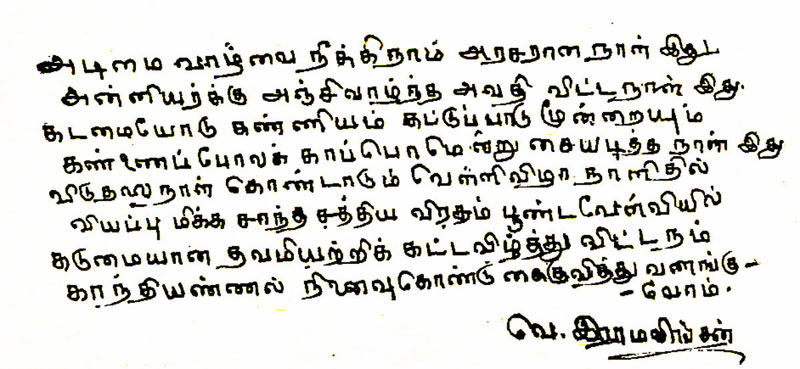 அடிமை வாழ்வை நீக்கிநாம் அரசரான நாள் இது
அன்னியர்க்கு அஞ்சிவாழ்ந்த அவதி விட்டநாள் இது.
கடமையோடு கண்ணியம் கட்டுப்பாடு மூன்றையும்
கண்ணைப்போலக் காப்பொமென்று சையடித்த நாள் இது
விடுதலைநாள் கொண்டாடும் வெள்ளிவிழா நாளிதில்
வியப்பு மிக்க சாந்த சத்திய விரதம் பூண்டவேள்வியில்
கடுமையான தவமியற்றிக் கட்டவிழ்த்து விட்டநம்
காந்தியண்ணல் நினைவுகொண்டு கைகுவித்து வணங்கு-
-வோம்.
வெ. இராமலிங்கன்